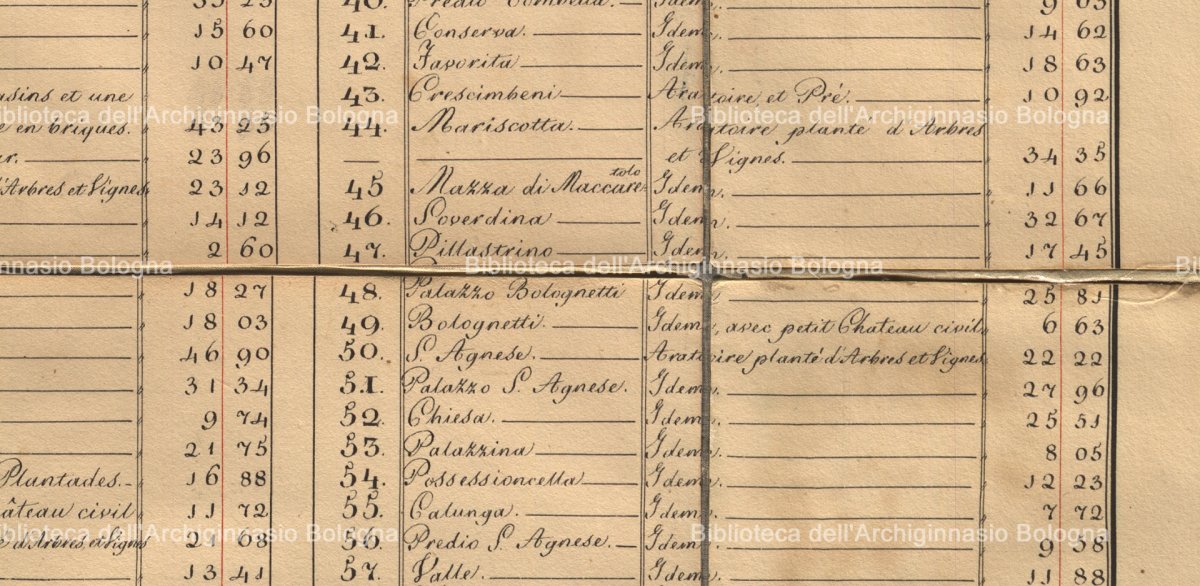 35 25 40. Predio Tombetta. Idem. 9 03
15 60 41. Conserva. Idem. 14 62
10 47 42. Favorita Idem. 18 63
asins et une 43. Crescimbeni Aratoire et Pré. 10 92
e en briques. 43 23 44. Mariscotta. Aratoire planté d'Arbres
r. 23 96 et Vignes. 34 35
d'Arbres et Vignes 23 12 45 Mazza di Maccaretolo Idem. 11 66
14 12 46. Soverdina Idem. 32 67
2 60 47. Pillastrino Idem. 17 45
18 27 48. Palazzo Bolognetti Idem. 25 81
18 03 49. Bolognetti. Idem, avec petit Chateau civil 6 63
46 90 50. S. Agnese. Aratoire planté d'Arbres et Vignes 22 22
31 34 51. Palazzo S. Agnese. Idem. 27 96
9 74 52. Chiesa. Idem. 25 51
21 75 53. Palazzina Idem. 8 05
Plantades. 16 88 54. Possessioncella Idem. 12 23
hâteau civil 11 72 55. Calunga. Idem. 7 72
é d'Arbres et Vignes 21 68 56. Predio S. Agnese. Idem. 9 58
13 41 57. Valle. Idem. 11 88
Biblioteca dell'Archiginnasio Bologna
Biblioteca dell'Archiginnasio Bologna
nnasio Bologna
Biblioteca dell'Archiginnasio Bologna
Bi
Biblioteca dell'Archiginnasio Bologna
Biblioteca dell'Archiginnasio Bologna